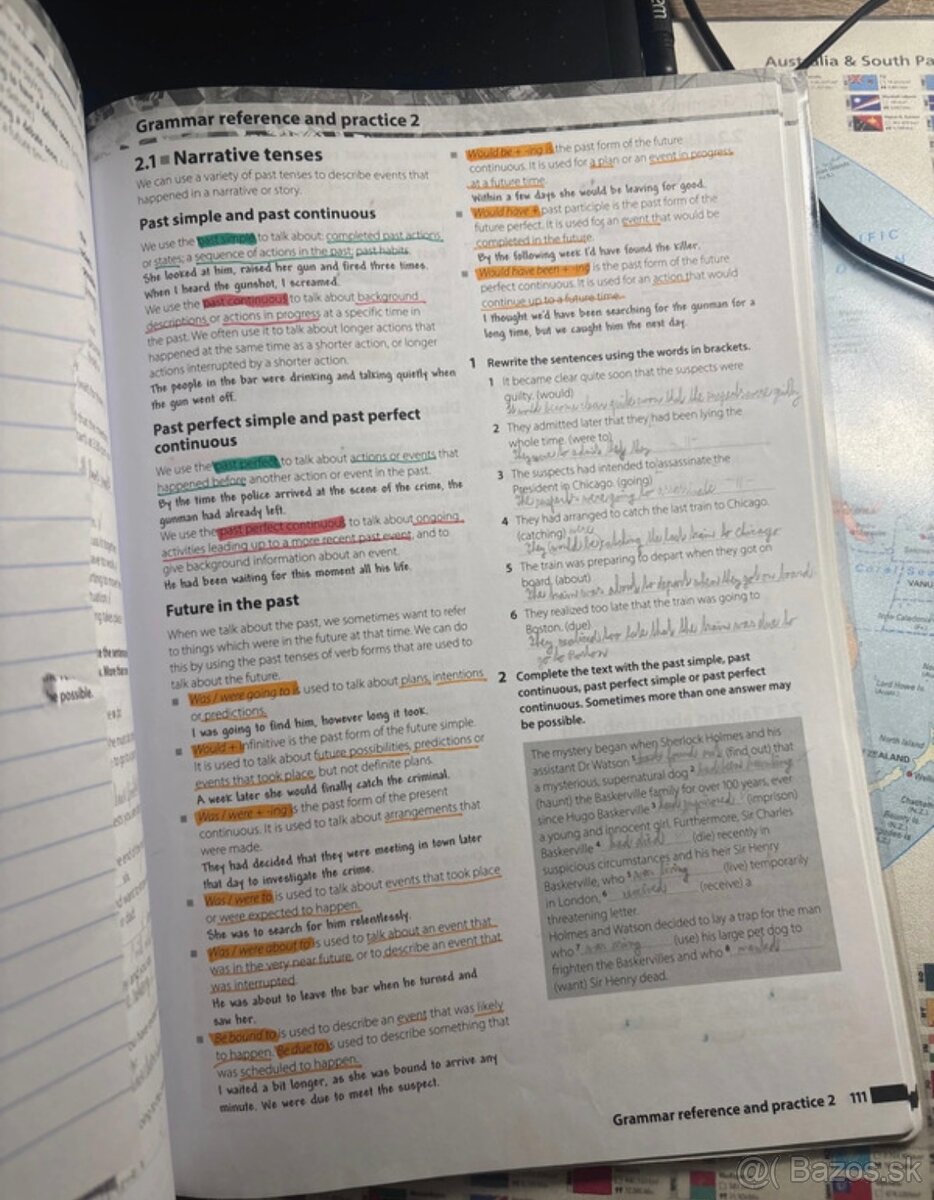 Australia & South Pa
Grammar reference and practice 2
2.1 Narrative tenses
We can use a variety of past tenses to describe events that
happened in a narrative or story.
Past simple and past continuous
We use the past simple to talk about: completed past actions
or states; a sequence of actions in the past; past habits.
She looked at him, raised her gun and fired three times.
When I heard the gunshot, I screamed.
We use the past continuous to talk about background
descriptions or actions in progress at a specific time in
the past. We often use it to talk about longer actions that
happened at the same time as a shorter action, or longer
actions interrupted by a shorter action.
The people in the bar were drinking and talking quietly when
the gun went off.
Past perfect simple and past perfect
continuous
We use the past perfect to talk about actions or events that
happened before another action or event in the past.
By the time the police arrived at the scene of the crime, the
gunman had already left.
We use the past perfect continuous to talk about ongoing
activities leading up to a more recent past event, and to
give background information about an event.
He had been waiting for this moment all his life.
Future in the past
When we talk about the past, we sometimes want to refer
to things which were in the future at that time. We can do
this by using the past tenses of verb forms that are used to
talk about the future.
Was / were going to is used to talk about plans, intentions
or predictions.
I was going to find him, however long it took.
Would + infinitive is the past form of the future simple.
It is used to talk about future possibilities, predictions or
events that took place, but not definite plans.
A week later she would finally catch the criminal.
Was / were + -ing is the past form of the present
continuous. It is used to talk about arrangements that
were made.
They had decided that they were meeting in town later
that day to investigate the crime.
Was / were to is used to talk about events that took place
or were expected to happen.
She was to search for him relentlessly.
Was / were about to is used to talk about an event that
was in the very near future, or to describe an event that
was interrupted.
He was about to leave the bar when he turned and
saw her.
Be bound to is used to describe an event that was likely
to happen. Be due to is used to describe something that
was scheduled to happen.
I waited a bit longer, as she was bound to arrive any
minute. We were due to meet the suspect.
Would be + -ing is the past form of the future
continuous. It is used for a plan or an event in progress
at a future time.
Within a few days she would be leaving for good.
Would have + past participle is the past form of the
future perfect. It is used for an event that would be
completed in the future.
By the following week I'd have found the killer.
Would have been + -ing is the past form of the future
perfect continuous. It is used for an action that would
continue up to a future time.
I thought we'd have been searching for the gunman for a
long time, but we caught him the next day.
1 Rewrite the sentences using the words in brackets.
1 It became clear quite soon that the suspects were
guilty. (would)
It would become clear quite soon that the suspects were guilty
2 They admitted later that they had been lying the
whole time. (were to)
They were to admit
3 The suspects had intended to assassinate the
President in Chicago. (going)
The suspects were going to
4 They had arranged to catch the last train to Chicago.
(catching) were
They (would be) catching the last train to Chicago
5 The train was preparing to depart when they got on
board. (about)
The train was about to depart when they got on board
6 They realized too late that the train was going to
Boston. (due)
They realized too late that the train was due to
go to Boston
2 Complete the text with the past simple, past
continuous, past perfect simple or past perfect
continuous. Sometimes more than one answer may
be possible.
The mystery began when Sherlock Holmes and his
assistant Dr Watson 1 (find out) that
a mysterious, supernatural dog 2 had been haunting
(haunt) the Baskerville family for over 100 years, ever
since Hugo Baskerville 3 had imprisoned (imprison)
a young and innocent girl. Furthermore, Sir Charles
Baskerville 4 had died (die) recently in
suspicious circumstances and his heir Sir Henry
Baskerville, who 5 was living (live) temporarily
in London, 6 received (receive) a
threatening letter.
Holmes and Watson decided to lay a trap for the man
who 7 was using (use) his large pet dog to
frighten the Baskervilles and who 8 wanted
(want) Sir Henry dead.
Grammar reference and practice 2 111
possible.
North Island
ZEALAND
@( Bazos.sk